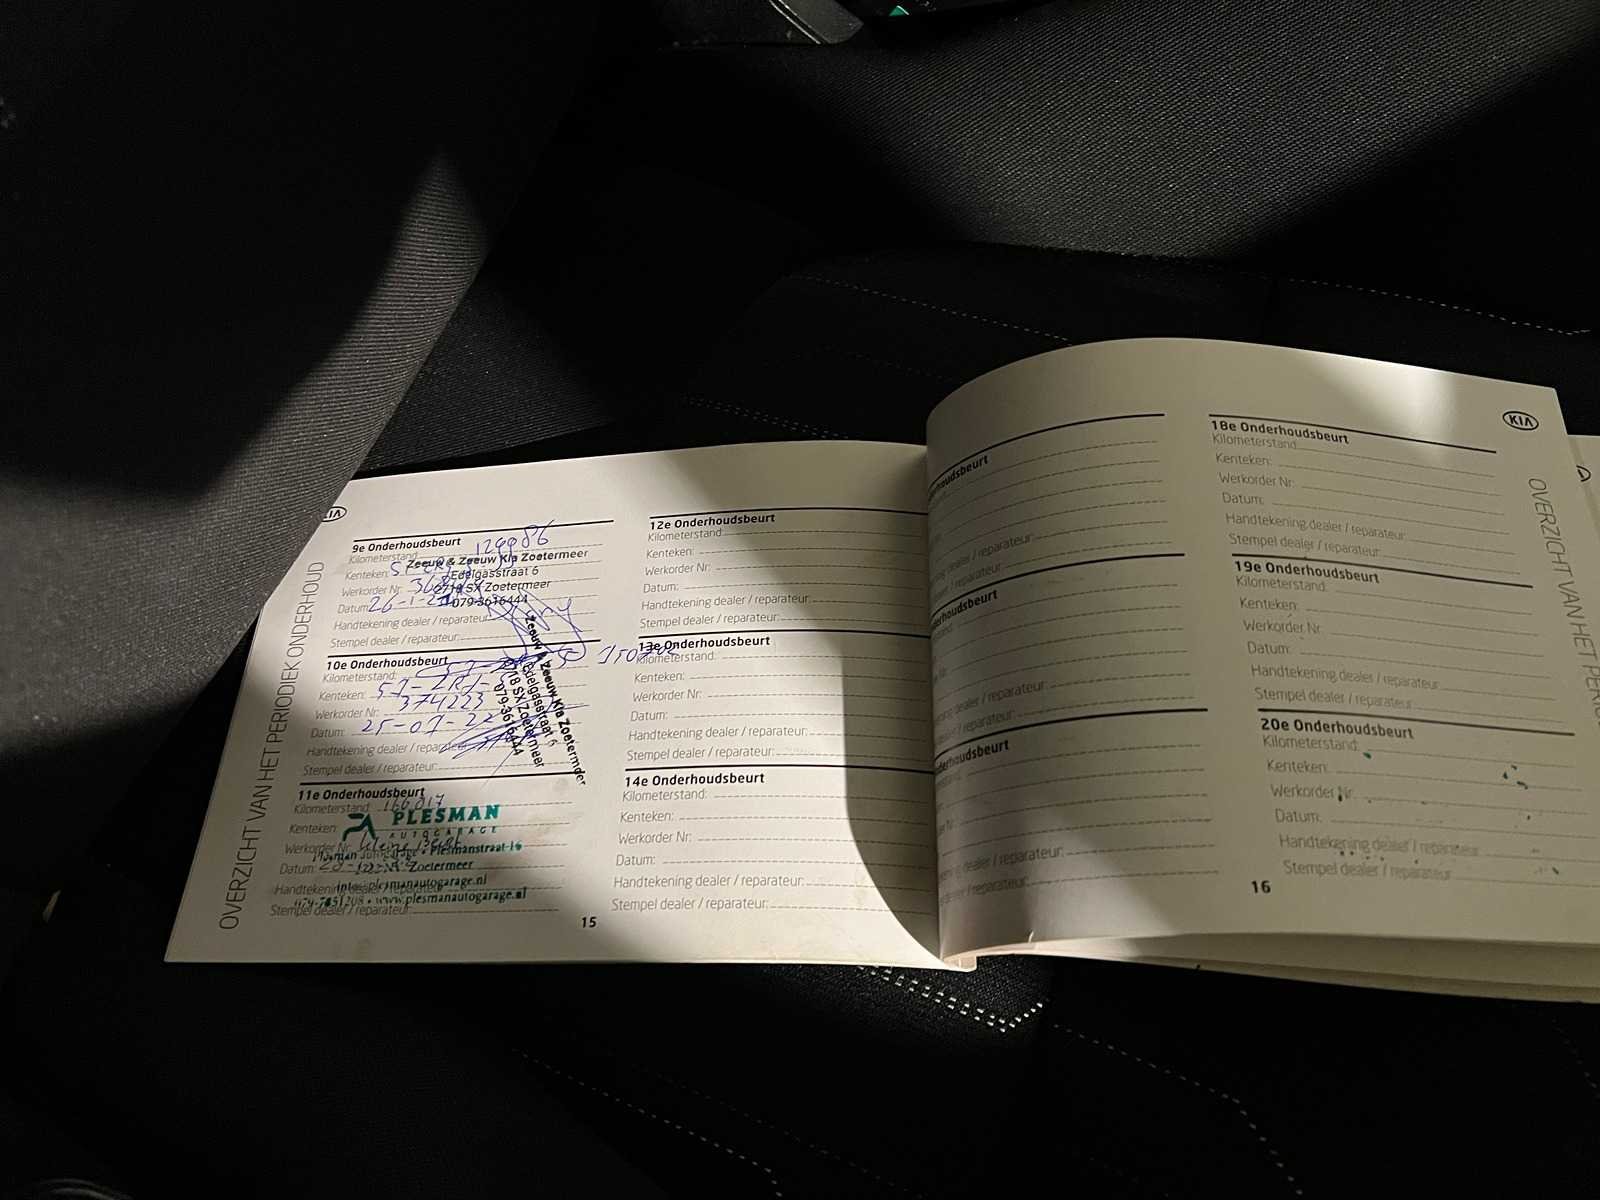 KIA
OVERZICHT VAN HET PERIODIEK ONDERHOUD
9e Onderhoudsbeurt
Kilometerstand:
Zeeuw & Zeeuw Kia Zoetermeer
Kenteken:
Edelgasstraat 6
Werkorder Nr:
2718 SX Zoetermeer
Datum: 26-1-22
079-3616444
Handtekening dealer / reparateur:
Stempel dealer / reparateur:
10e Onderhoudsbeurt
Kilometerstand:
Kenteken:
Werkorder Nr: 374223
Datum: 25-07-22
Handtekening dealer / reparateur:
Stempel dealer / reparateur:
Zeeuw & Zeeuw Kia Zoetermeer
Edelgasstraat 6
2718 SX Zoetermeer
079-3616444
11e Onderhoudsbeurt
Kilometerstand: 166017
PLESMAN
Kenteken:
AUTOGARAGE
Werkorder Nr: kleine beurt
Plesman autogarage • Plesmanstraat 16
Datum:
Zoetermeer
Handtekening dealer / reparateur:
info@plesmanautogarage.nl
www.plesmanautogarage.nl
Stempel dealer / reparateur:
15
12e Onderhoudsbeurt
Kilometerstand:
Kenteken:
Werkorder Nr:
Datum:
Handtekening dealer / reparateur:
Stempel dealer / reparateur:
13e Onderhoudsbeurt
Kilometerstand:
Kenteken:
Werkorder Nr:
Datum:
Handtekening dealer / reparateur:
Stempel dealer / reparateur:
14e Onderhoudsbeurt
Kilometerstand:
Kenteken:
Werkorder Nr:
Datum:
Handtekening dealer / reparateur:
Stempel dealer / reparateur:
KIA
OVERZICHT VAN HET PERI
18e Onderhoudsbeurt
Kilometerstand:
Kenteken:
Werkorder Nr:
Datum:
Handtekening dealer / reparateur:
Stempel dealer / reparateur:
19e Onderhoudsbeurt
Kilometerstand:
Kenteken:
Werkorder Nr:
Datum:
Handtekening dealer / reparateur:
Stempel dealer / reparateur:
20e Onderhoudsbeurt
Kilometerstand:
Kenteken:
Werkorder Nr:
Datum:
Handtekening dealer / reparateur:
Stempel dealer / reparateur:
16